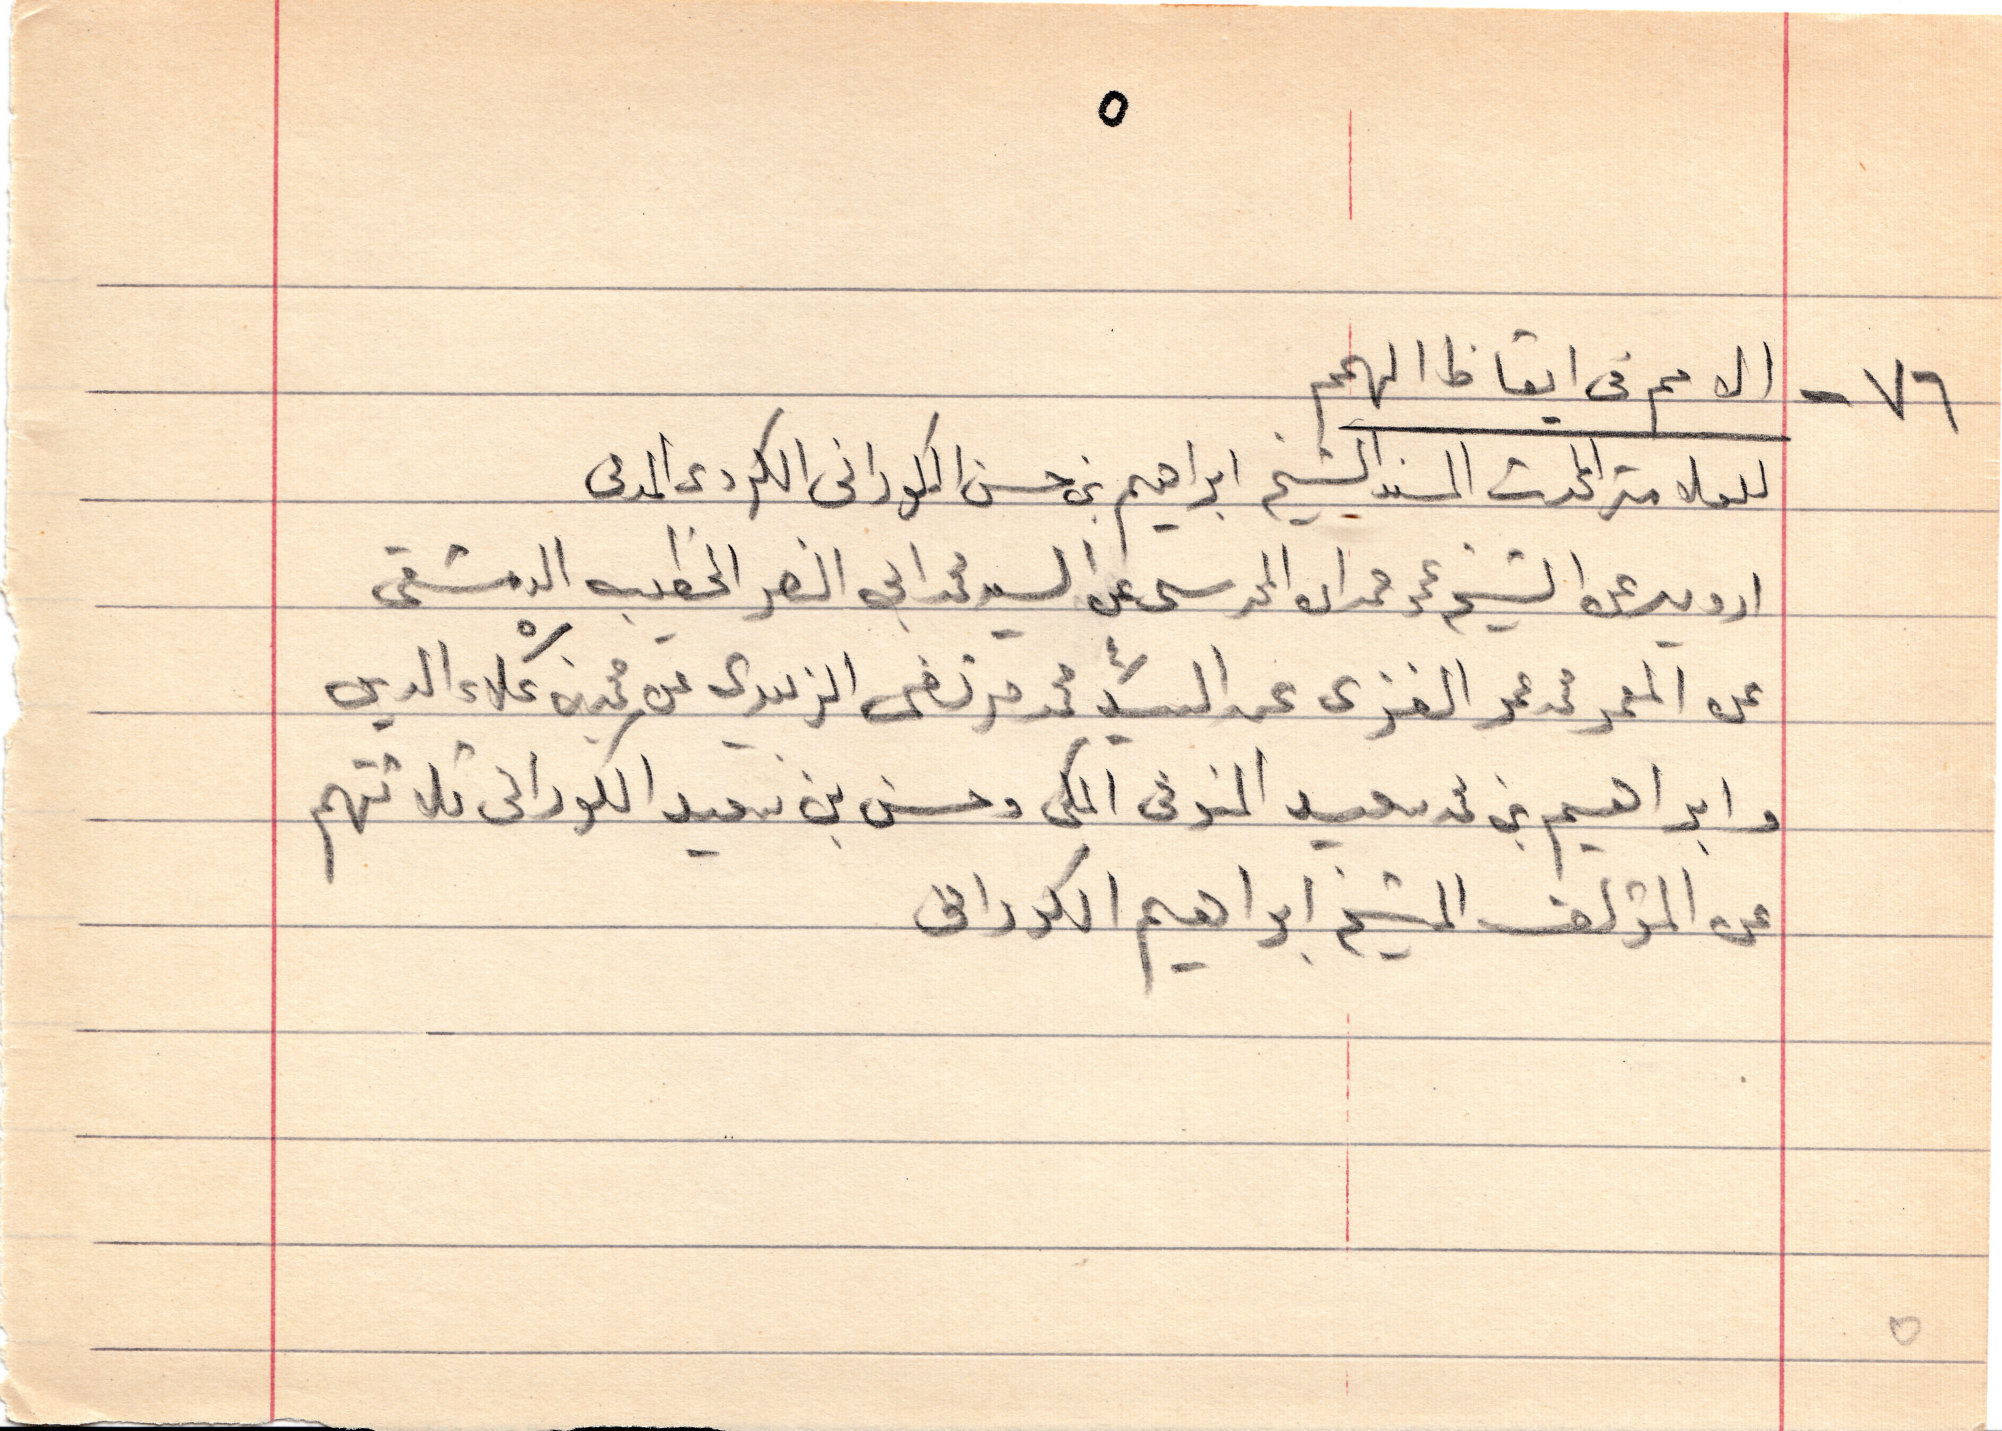 ٥
٧٦ - الامم فى ايقاظ الهمم
للعلامة المحدث المسند الشيخ ابراهيم بن حسن الكورانى الكردى المدنى
ارويه عن الشيخ عمر حمدان المحرسى عن السيد محمد ابى النصر الخطيب الدمشقى
عن المعمر محمد عمر الغزى عن السيد محمد مرتضى الزبيدى عن محمد بن علاء الدين
وابراهيم بن محمد سعيد المنوفى المكى وحسن بن سعيد الكورانى ثلاثتهم
عن المؤلف الشيخ ابراهيم الكورانى
٥